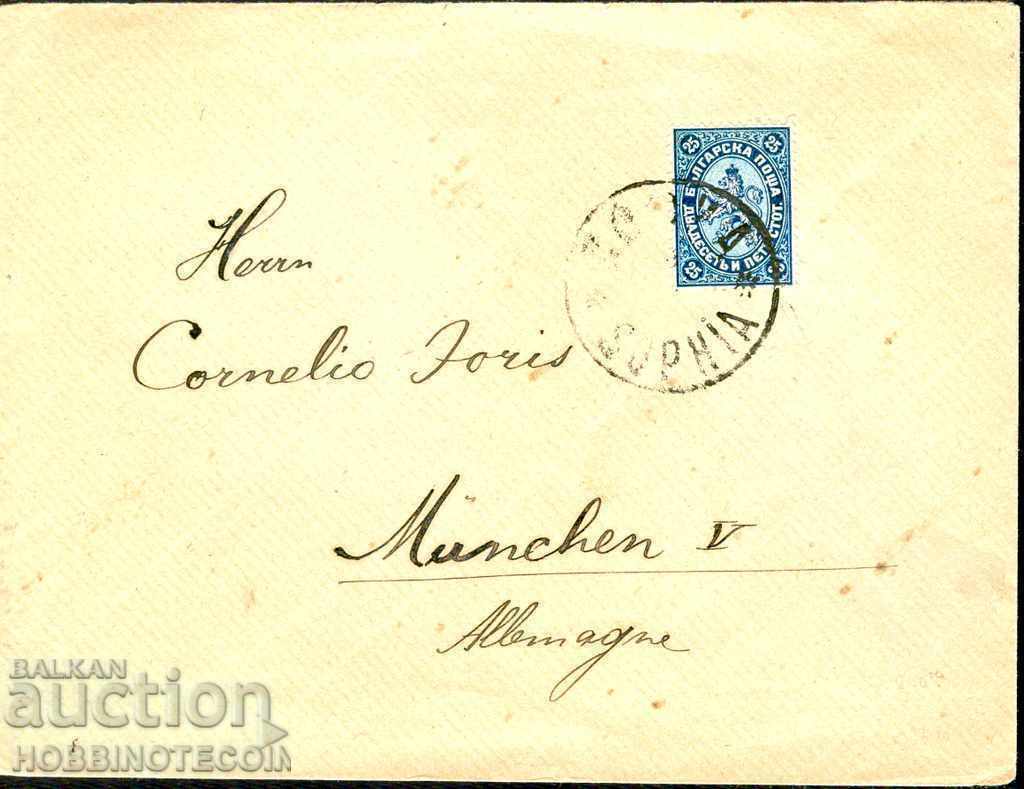 25 25
БЪЛГАРСКА ПОЩА
ДВАДЕСЕТЬ И ПЕТ СТОТ.
25
SOPHIA
Herrn
Cornelio Joris
München V
Allemagne
BALKAN
auction
HOBBINOTECOIN